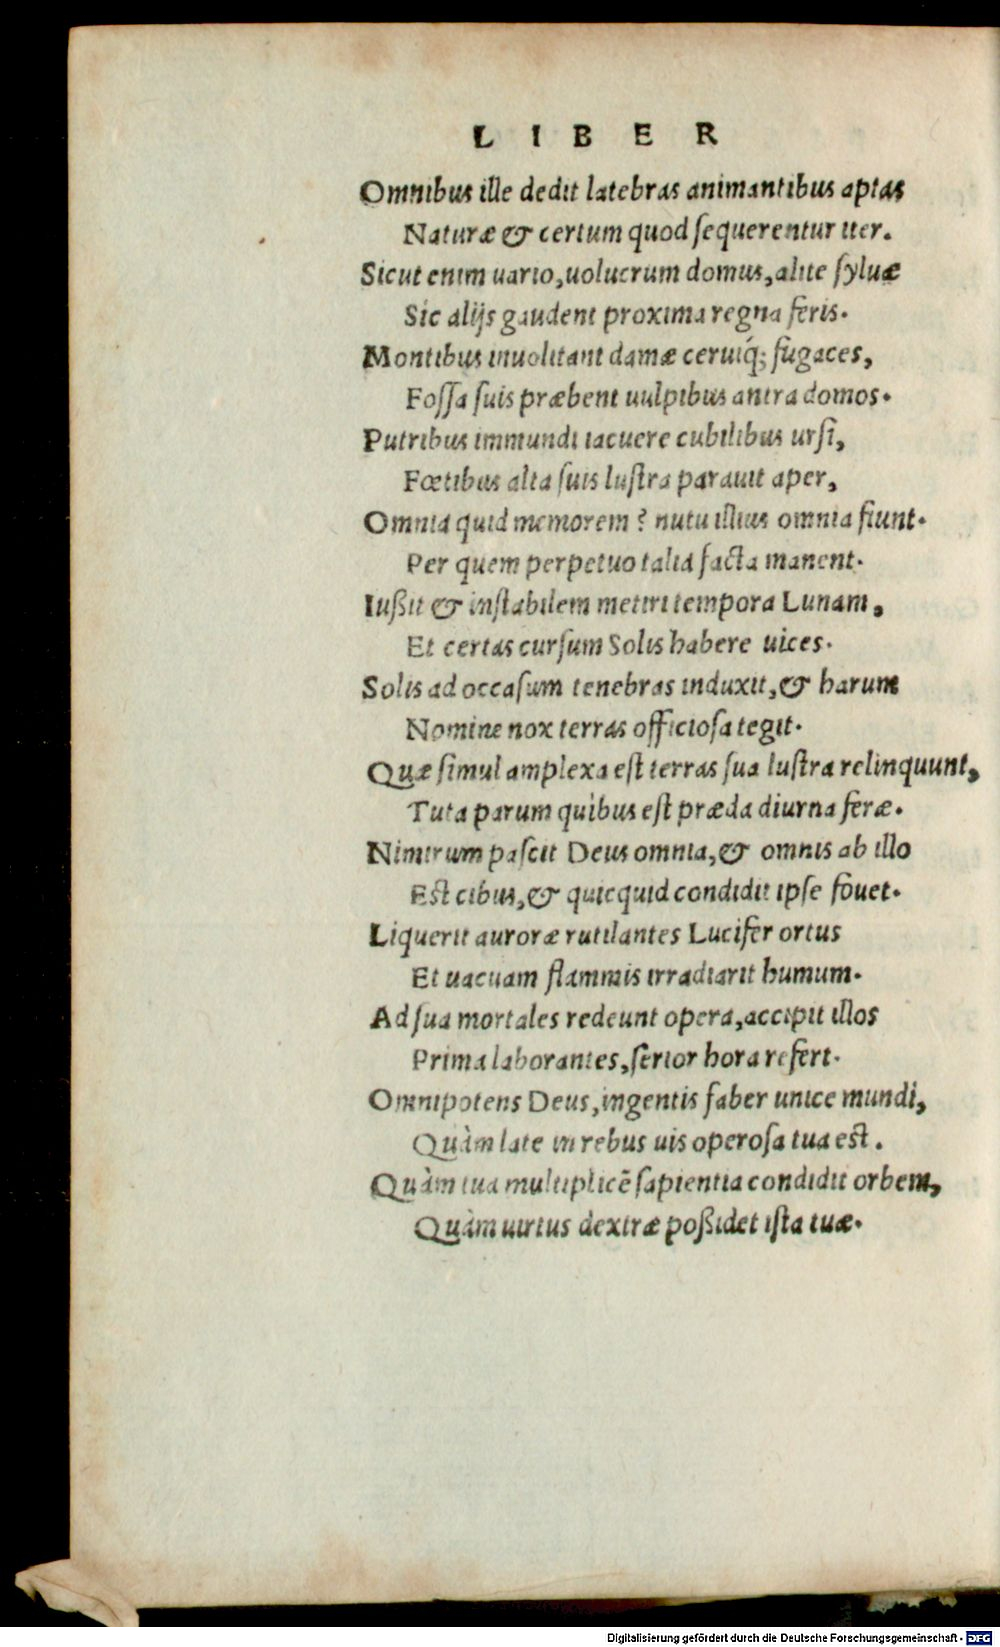 LIBER
Omnibus ille dedit latebras animantibus aptas
Naturæ & certum quod sequerentur iter.
Sicut enim uario, uolucrum domus, alite syluæ
Sic alijs gaudent proxima regna feris.
Montibus inuolitant damæ ceruiq́; fugaces,
Fossa suis præbent uulpibus antra domos.
Putribus immundi iacuere cubilibus ursi,
Fœtibus alta suis lustra parauit aper,
Omnia quid memorem? nutu illius omnia fiunt.
Per quem perpetuo talia facta manent.
Iußit & instabilem metiri tempora Lunam,
Et certas cursum Solis habere uices.
Solis ad occasum tenebras induxit, & harum
Nomine nox terras officiosa tegit.
Quæ simul amplexa est terras sua lustra relinquunt,
Tuta parum quibus est præda diurna feræ.
Nimirum pascit Deus omnia, & omnis ab illo
Est cibus, & quicquid condidit ipse fouet.
Liquerit auroræ rutilantes Lucifer ortus
Et uacuam flammis irradiarit humum.
Ad sua mortales redeunt opera, accipit illos
Prima laborantes, serior hora refert.
Omnipotens Deus, ingentis faber unice mundi,
Quàm late in rebus uis operosa tua est.
Quàm tua multiplicẽ sapientia condidit orbem,
Quàm uirtus dextræ poßidet ista tuæ.
Digitalisierung gefördert durch die Deutsche Forschungsgemeinschaft - DFG